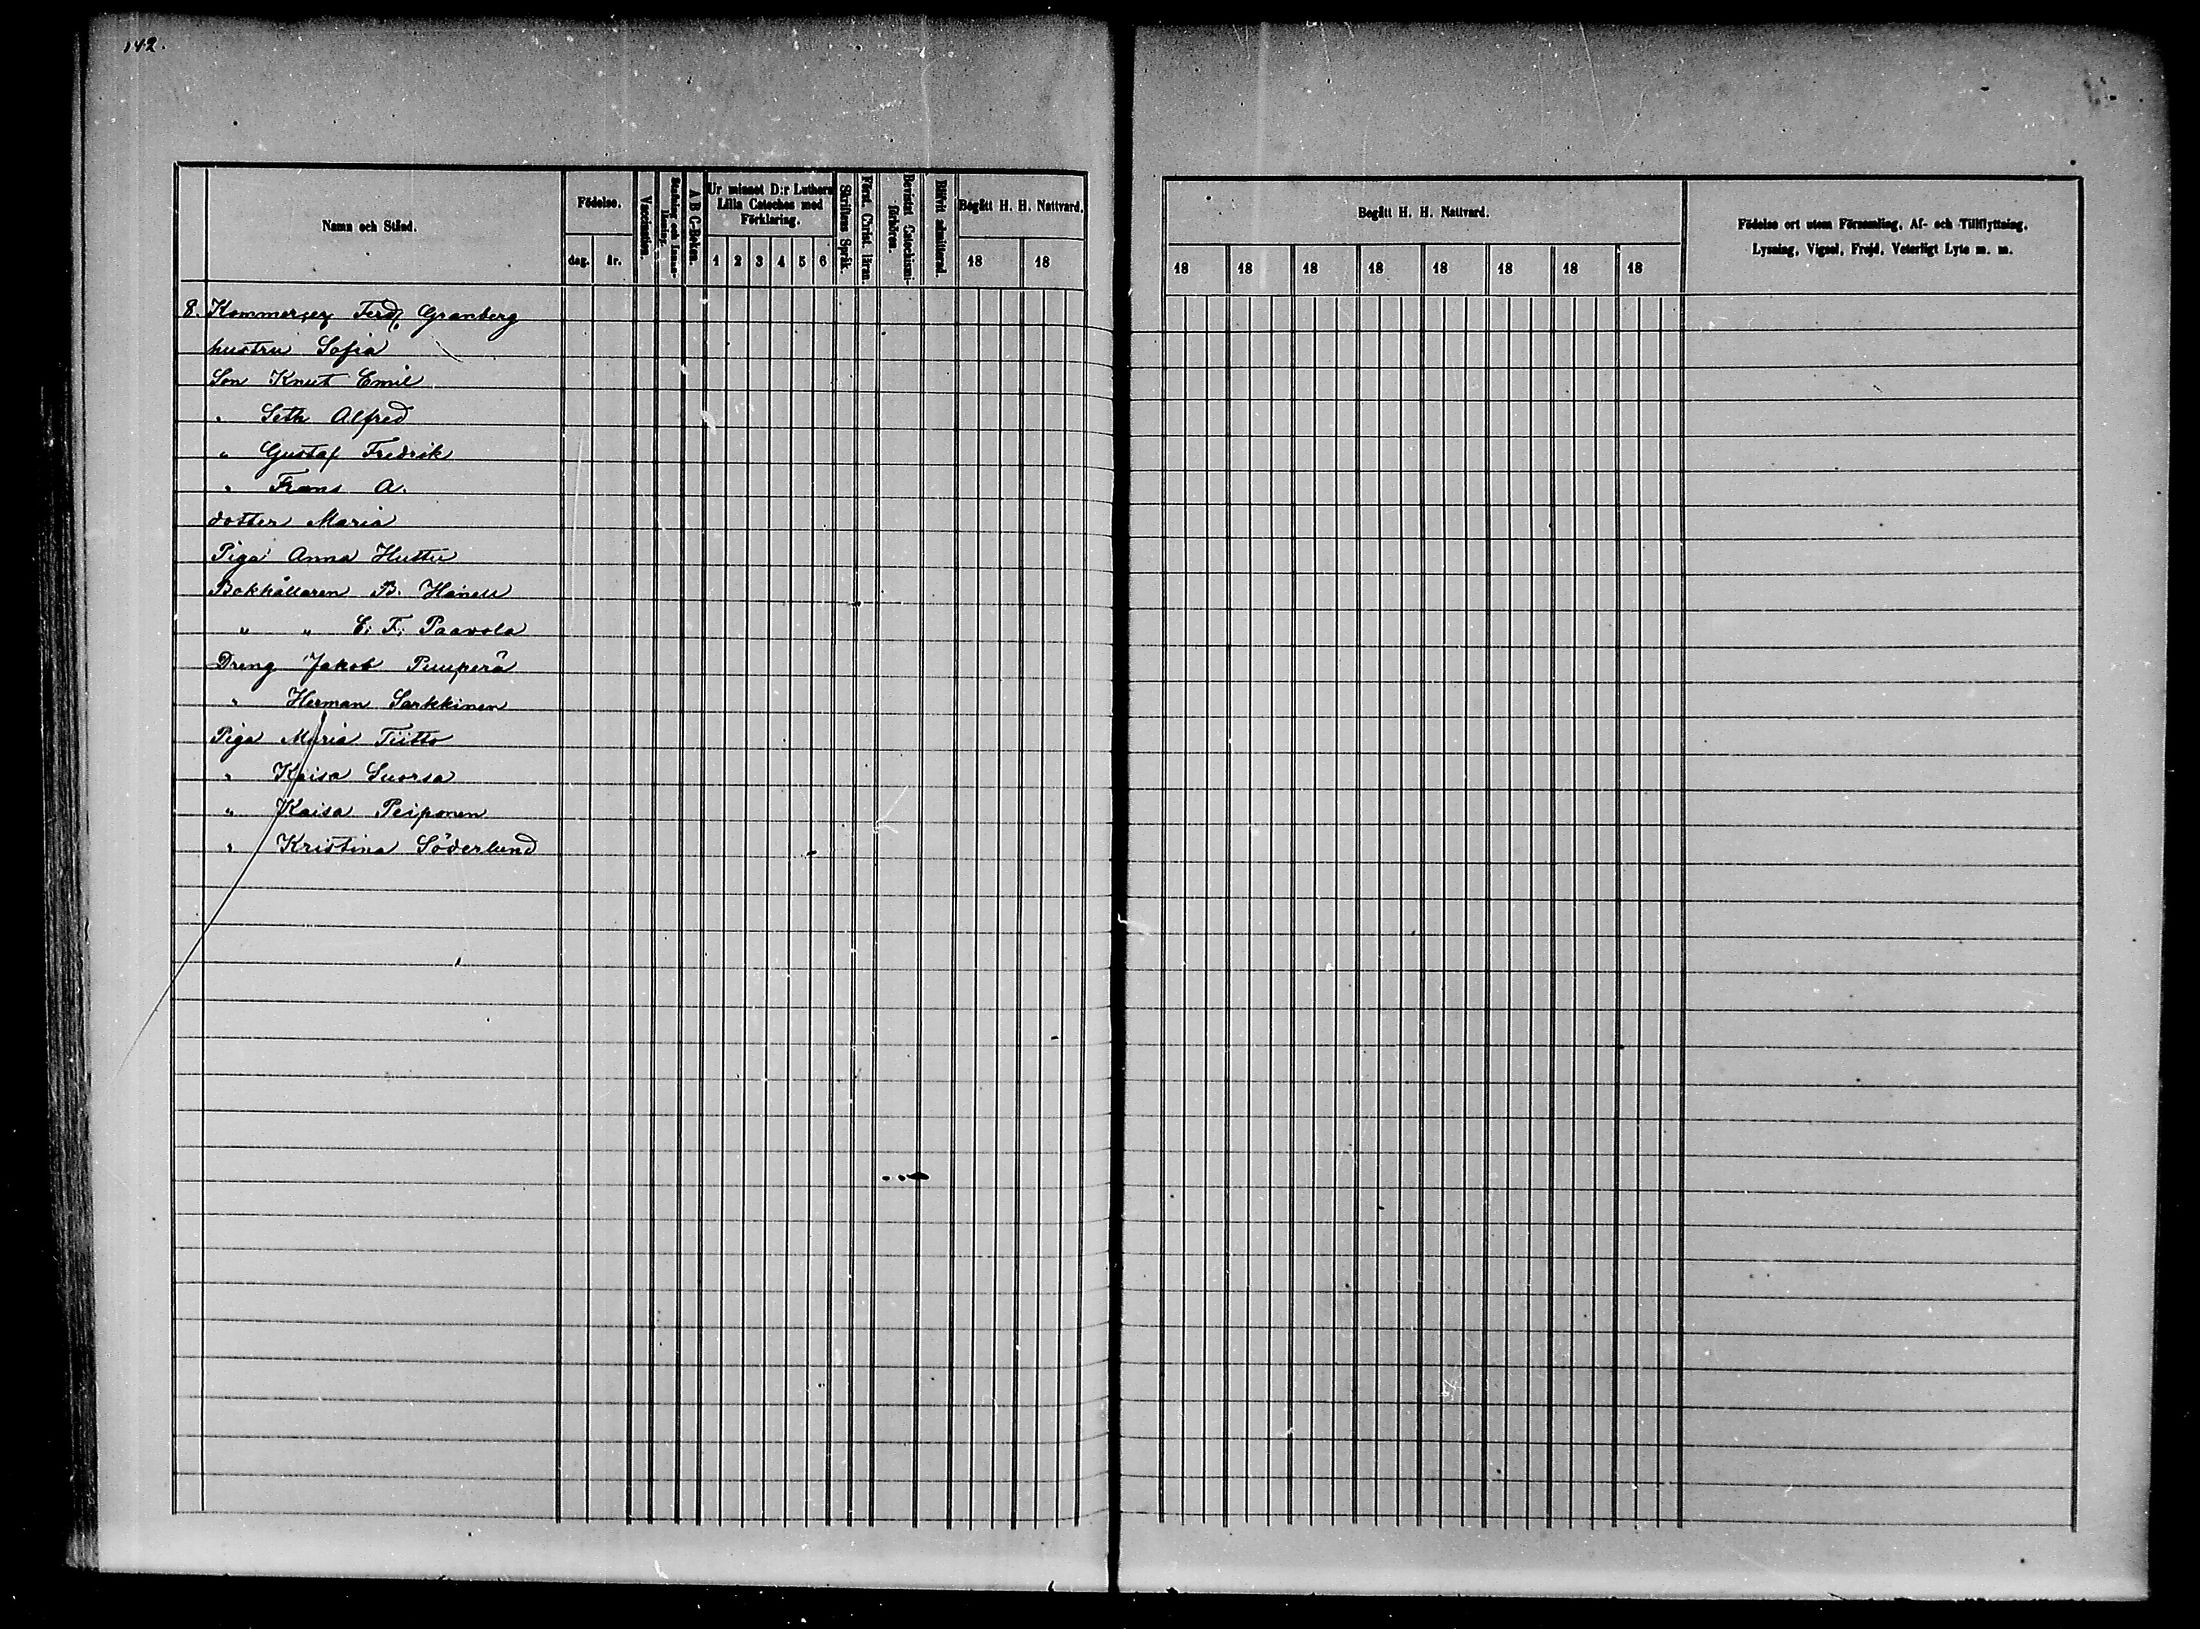 142.
Namn och Stånd.
Födelse.
dag. år.
Vaccination.
Stafning och Innanläsning.
A B C-Boken.
Ur minnet D:r Luthers Lilla Cateches med Förklaring.
1 2 3 4 5 6
Skriftens Språk.
Först. Christ. läran.
Bevistat Catechismiförhören.
Blifvit admitterad.
Begått H. H. Nattvard.
18 18
Begått H. H. Nattvard.
18 18 18 18 18 18 18 18
Födelse ort utom Församling, Af- och Tillflyttning,
Lysning, Vigsel, Frejd, Veterligt Lyte m. m.
8. Kommerser Ferd. Granberg
hustru Sofia
Son Knut Emil
" Seth Alfred
" Gustaf Fredrik
" Frans A.
dotter Maria
Piga Anna Huttu
Bokhållaren B. Hanell
" " E. F. Paavola
Dreng Jakob Puuperä
" Herman Sarkkinen
Piga Maria Tiitto
" Kaisa Suorsa
" Kaisa Peiponen
" Kristina Söderlund